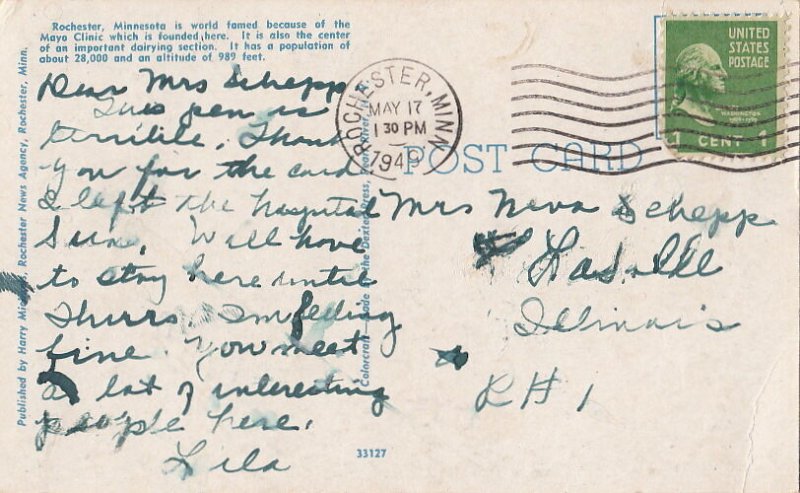 Rochester, Minnesota is world famed because of the
Mayo Clinic which is founded here. It is also the center
of an important dairying section. It has a population of
about 28,000 and an altitude of 989 feet.
Dear Mrs Schepp
This pen is
terrible, Thank
you for the card
I left the hospital
Sun, Will have
to stay here until
Thurs. Im feeling
fine. You meet
a lot of interesting
people here.
Lila
Published by Harry Rochester News Agency, Rochester, Minn.
Colorcraft the Dexter Press, Pearl River,
33127
ROCHESTER, MINN.
MAY 17
1 30 PM
1949
UNITED
STATES
POSTAGE
WASHINGTON
1 CENT 1
POST CARD
Mrs Neva Schepp
LaSalle
Illinois
R# 1